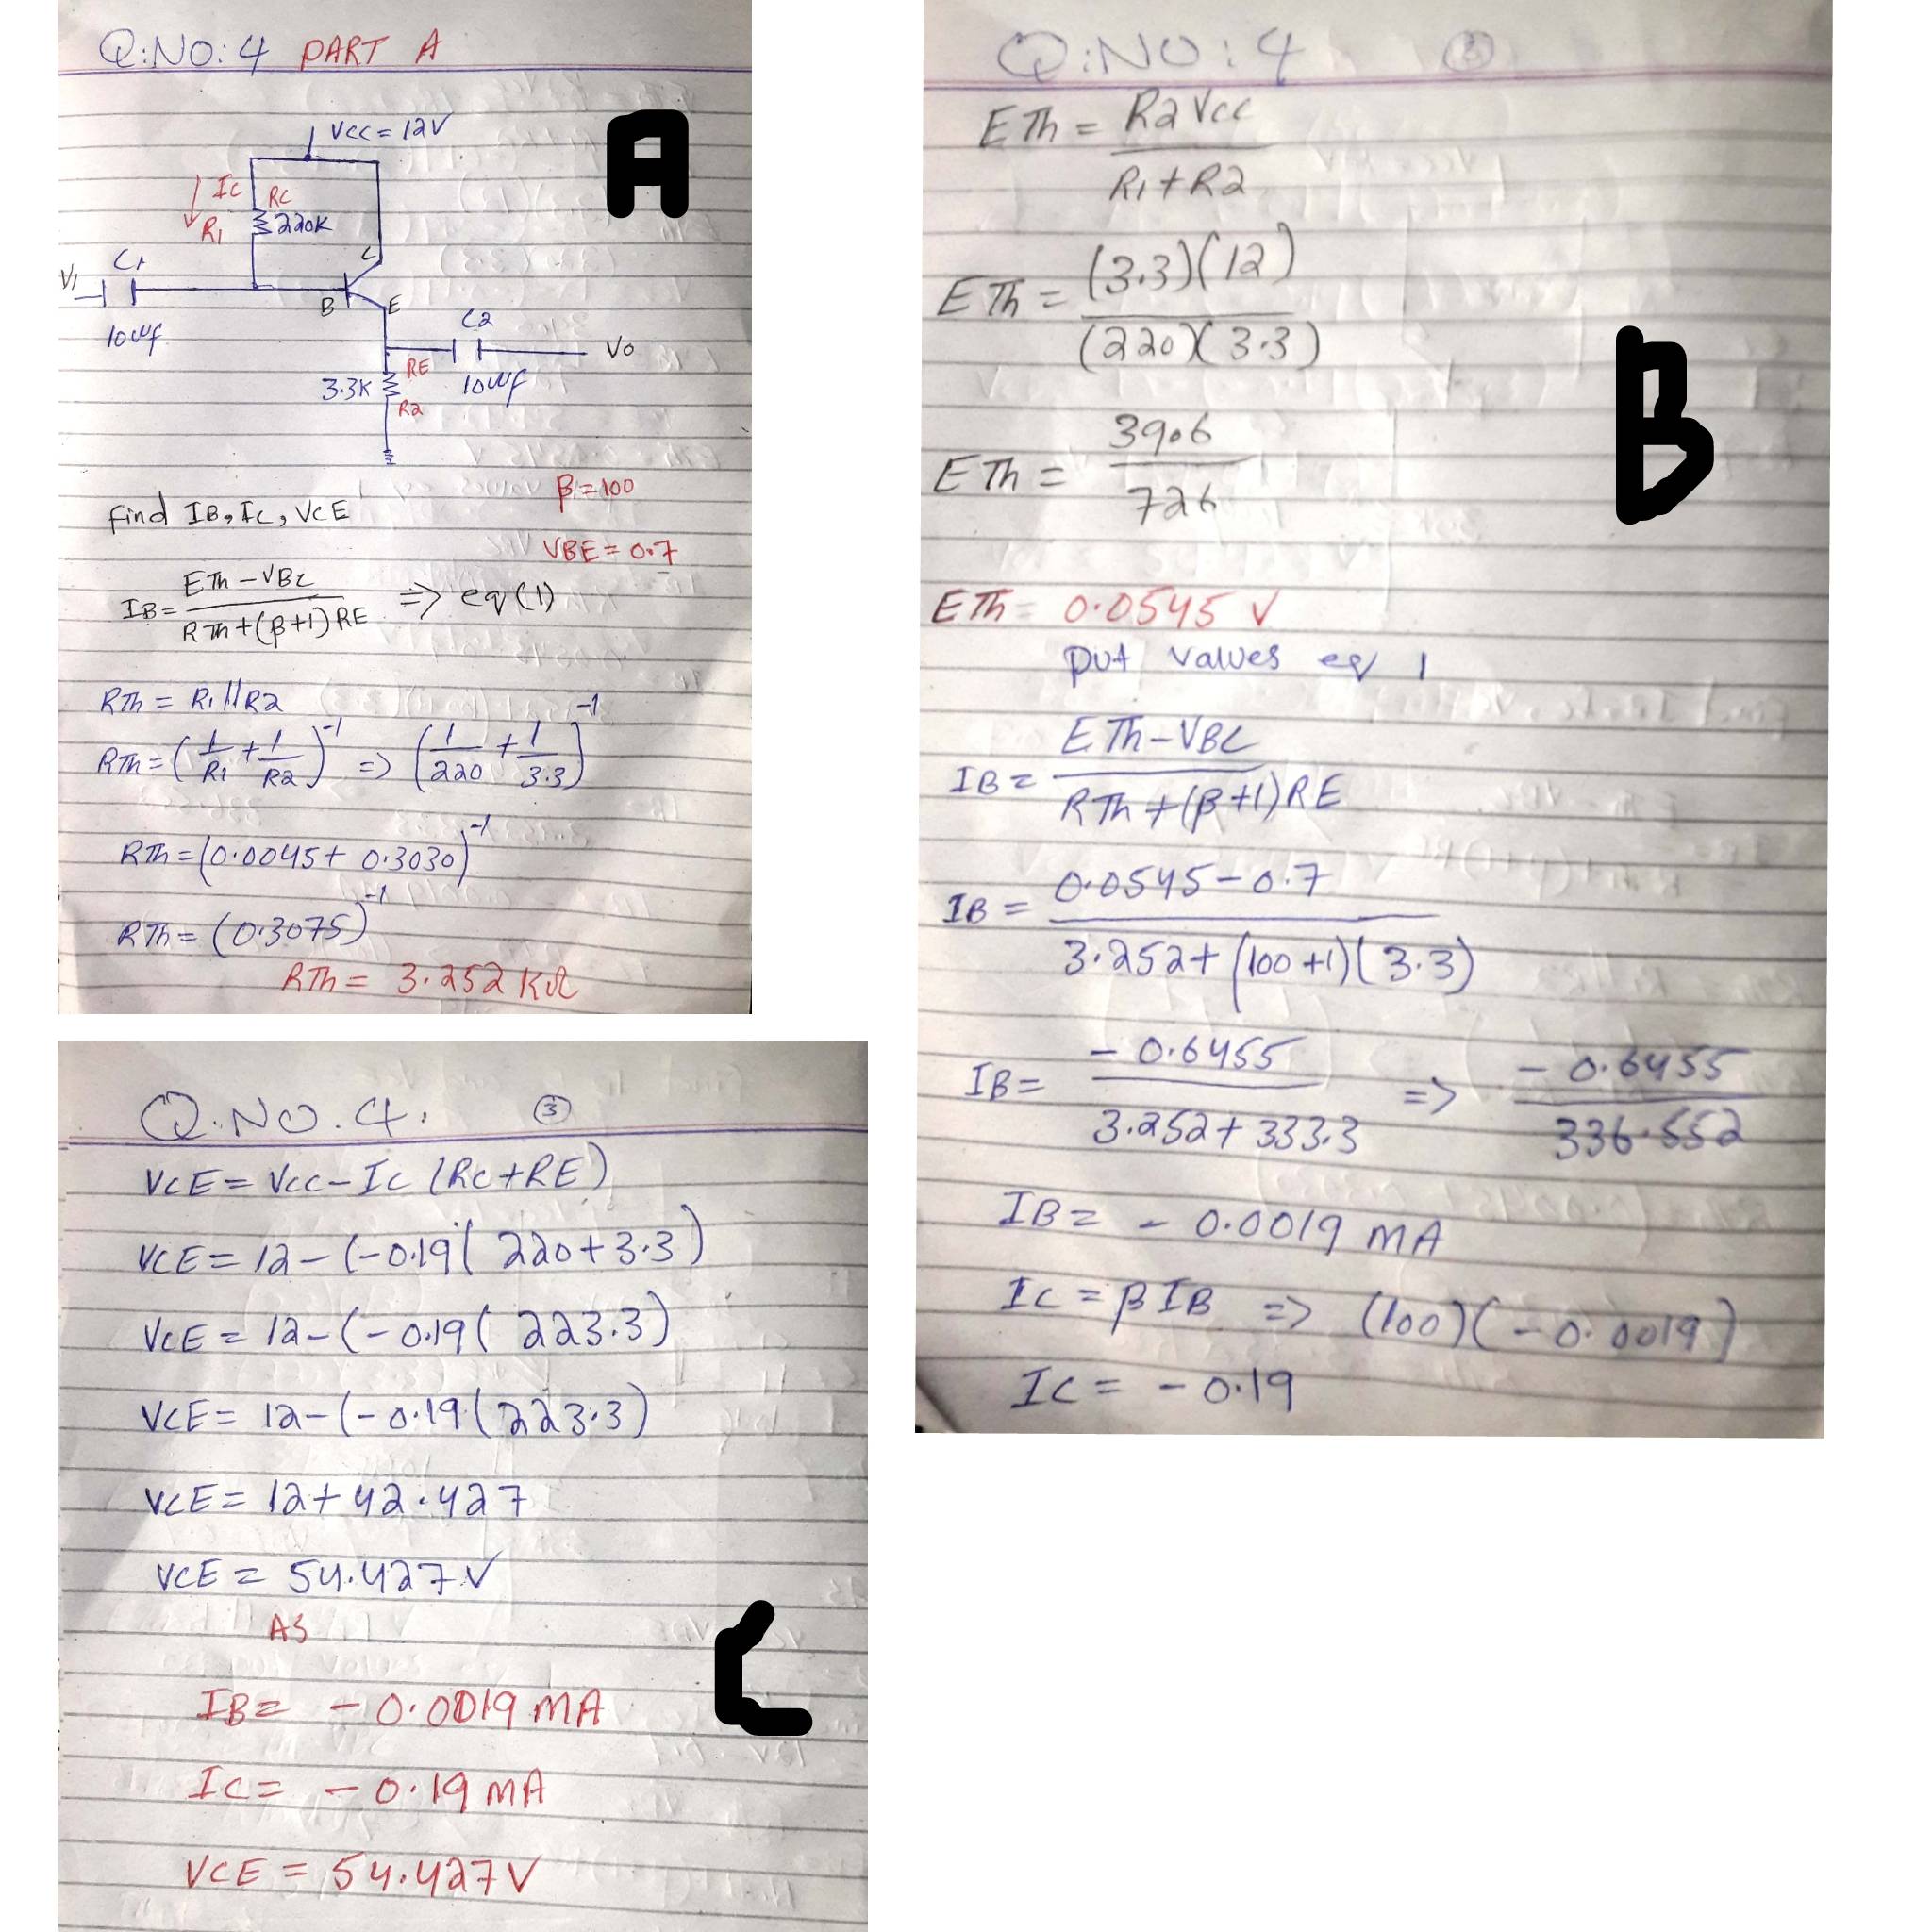 Q:NO:4 PART A
A
VCC = 12V
IC RC
R1 220K
C1
V1
C
B
E
10uf
C2
Vo
RE
3.3K 10uf
R2
β = 100
find IB, IC, VCE
VBE = 0.7
IB = ETh - VBE / RTh + (β+1) RE => eq (1)
RTh = R1 || R2
RTh = (1/R1 + 1/R2)^-1 => (1/220 + 1/3.3)^-1
RTh = (0.0045 + 0.3030)^-1
RTh = (0.3075)^-1
RTh = 3.252 KΩ
Q:NO:4 2
B
ETh = R2 Vcc / R1 + R2
ETh = (3.3)(12) / (220)(3.3)
ETh = 39.6 / 726
ETh = 0.0545 V
put values eq 1
IB = ETh - VBE / RTh + (β+1) RE
IB = 0.0545 - 0.7 / 3.252 + (100+1)(3.3)
IB = - 0.6455 / 3.252 + 333.3 => - 0.6455 / 336.552
IB = - 0.0019 MA
IC = β IB => (100)(-0.0019)
IC = - 0.19
Q.NO.4. 3
VCE = Vcc - Ic (Rc + RE)
VCE = 12 - (-0.19( 220 + 3.3)
VCE = 12 - (-0.19( 223.3)
VCE = 12 - (-0.19 (223.3)
VCE = 12 + 42.427
VCE = 54.427 V
AS
C
IB = - 0.0019 MA
IC = - 0.19 MA
VCE = 54.427 V